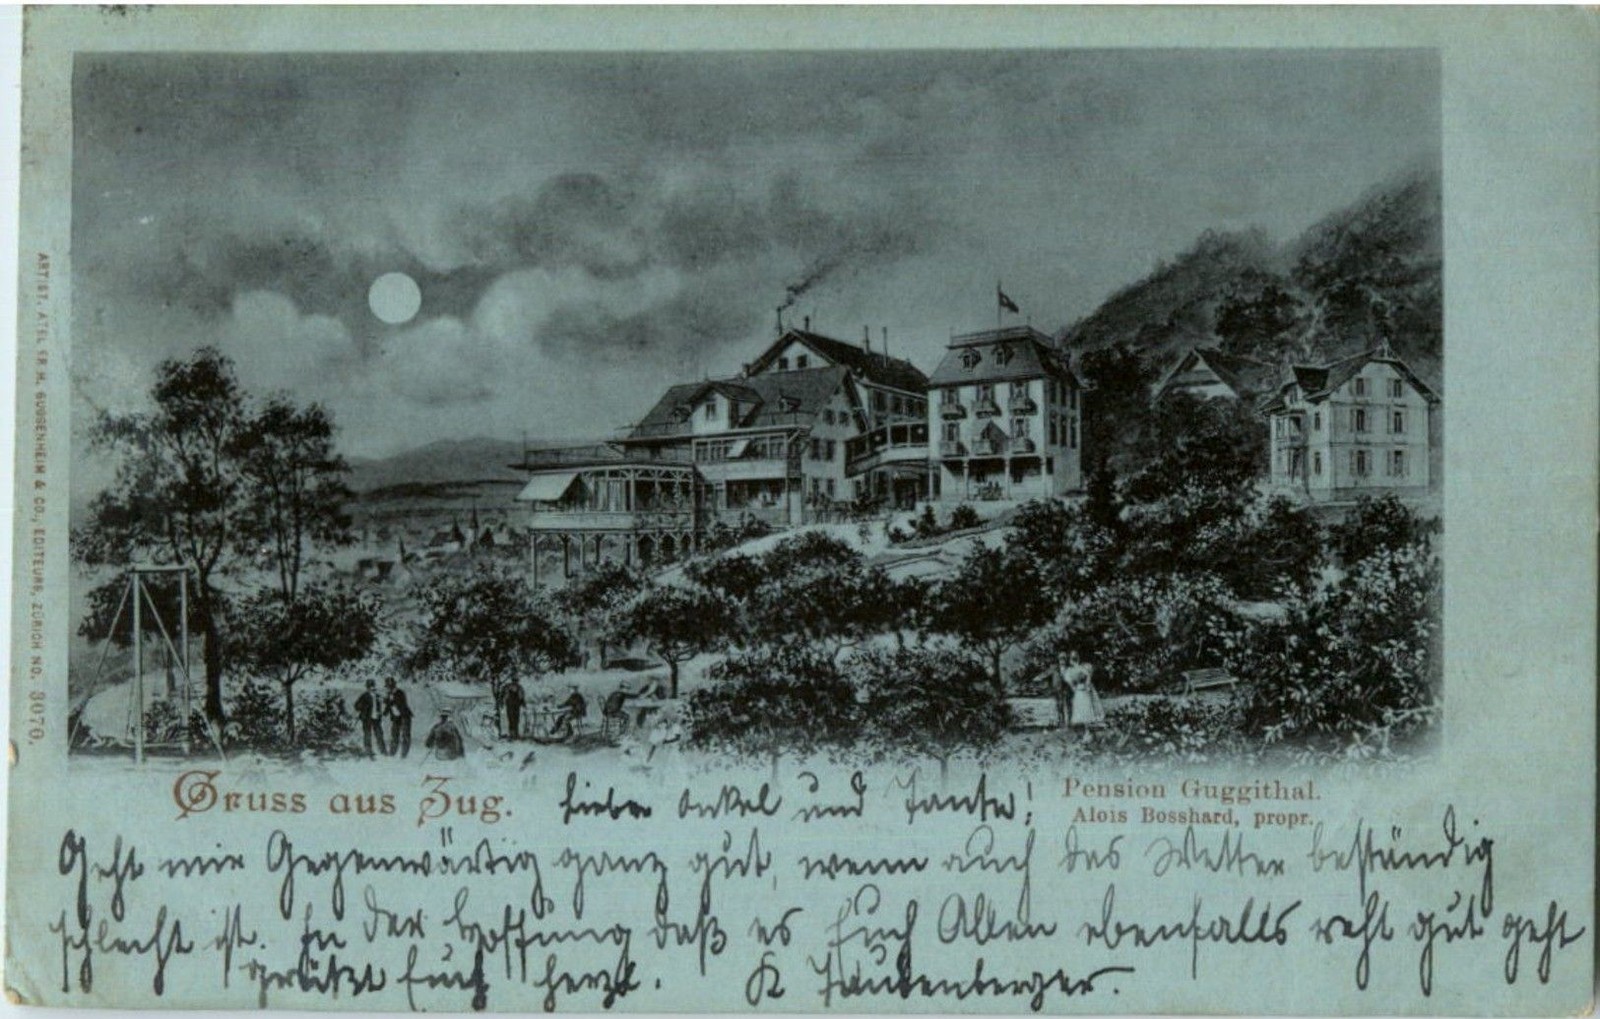 ARTIST. ATELIER H. GUGGENHEIM & CO., EDITEURS, ZÜRICH NO. 3070.
Gruss aus Zug.
Liebe Onkel und Tante!
Pension Guggithal.
Alois Bosshard, propr.
Geht mir Gegenwärtig ganz gut, wenn auch das Wetter beständig
schlecht ist. In der Hoffnung daß es Euch Allen ebenfalls recht gut geht
grüßt Euch herzl. K Taubenberger.